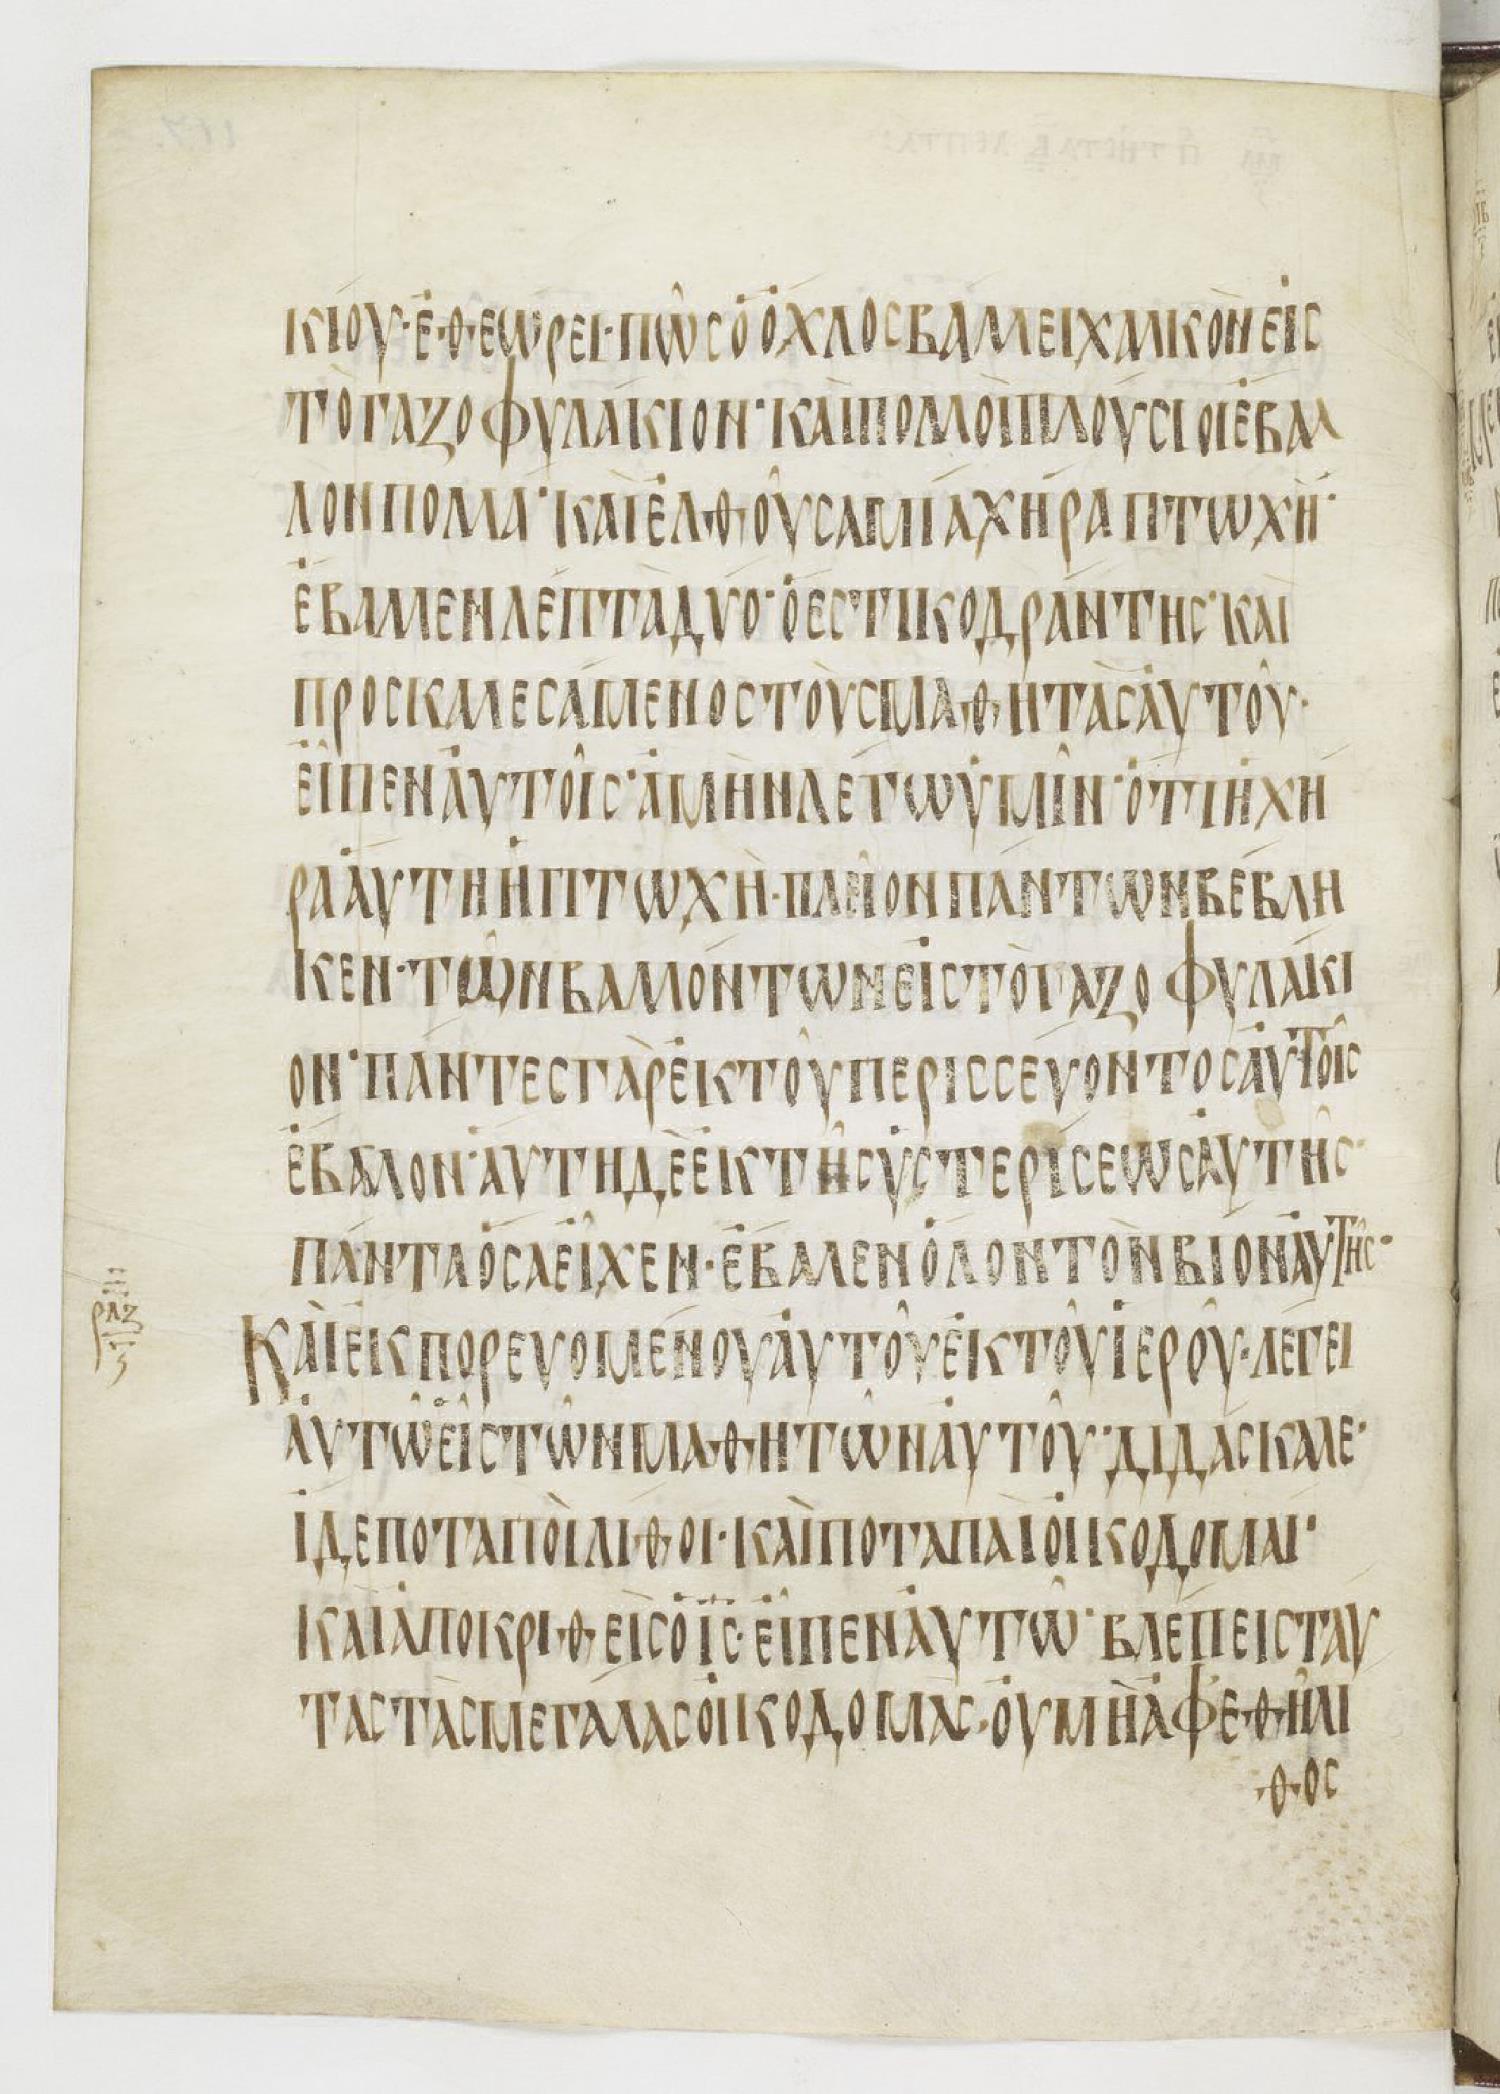 κίου· ἐθεώρει· πῶς ὁ ὄχλος βάλλει χαλκὸν εἰς
τὸ γαζοφυλάκιον· καὶ πολλοὶ πλούσιοι ἔβαλ
λον πολλά· καὶ ἐλθοῦσα μία χήρα πτωχὴ·
ἔβαλλεν λεπτὰ δύο· ὅ ἐστι κοδράντης· καὶ
προσκαλεσάμενος τοὺς μαθητὰς αὐτοῦ·
εἶπεν αὐτοῖς· ἀμὴν λέγω ὑμῖν· ὅτι ἡ χή
ρα αὕτη ἡ πτωχὴ· πλεῖον πάντων βέβλη
κεν· τῶν βαλλόντων εἰς τὸ γαζοφυλάκι
ον· πάντες γὰρ ἐκ τοῦ περισσεύοντος αὐτοῖς
ἔβαλον· αὕτη δὲ ἐκ τῆς ὑστερίσεως αὐτῆς·
πάντα ὅσα εἶχεν· ἔβαλεν ὅλον τὸν βίον αὐτῆς·
ρλζ
ϛ
Καὶ ἐκπορευομένου αὐτοῦ ἐκ τοῦ ἱεροῦ· λέγει
αὐτῷ εἷς τῶν μαθητῶν αὐτοῦ· διδάσκαλε·
ἴδε ποταποὶ λίθοι· καὶ ποταπαὶ οἰκοδομαί·
καὶ ἀποκριθεὶς ὁ ι̅ς̅· εἶπεν αὐτῷ· βλέπεις ταύ
τας τὰς μεγάλας οἰκοδομάς· οὐ μὴ ἀφεθῇ λί
θος